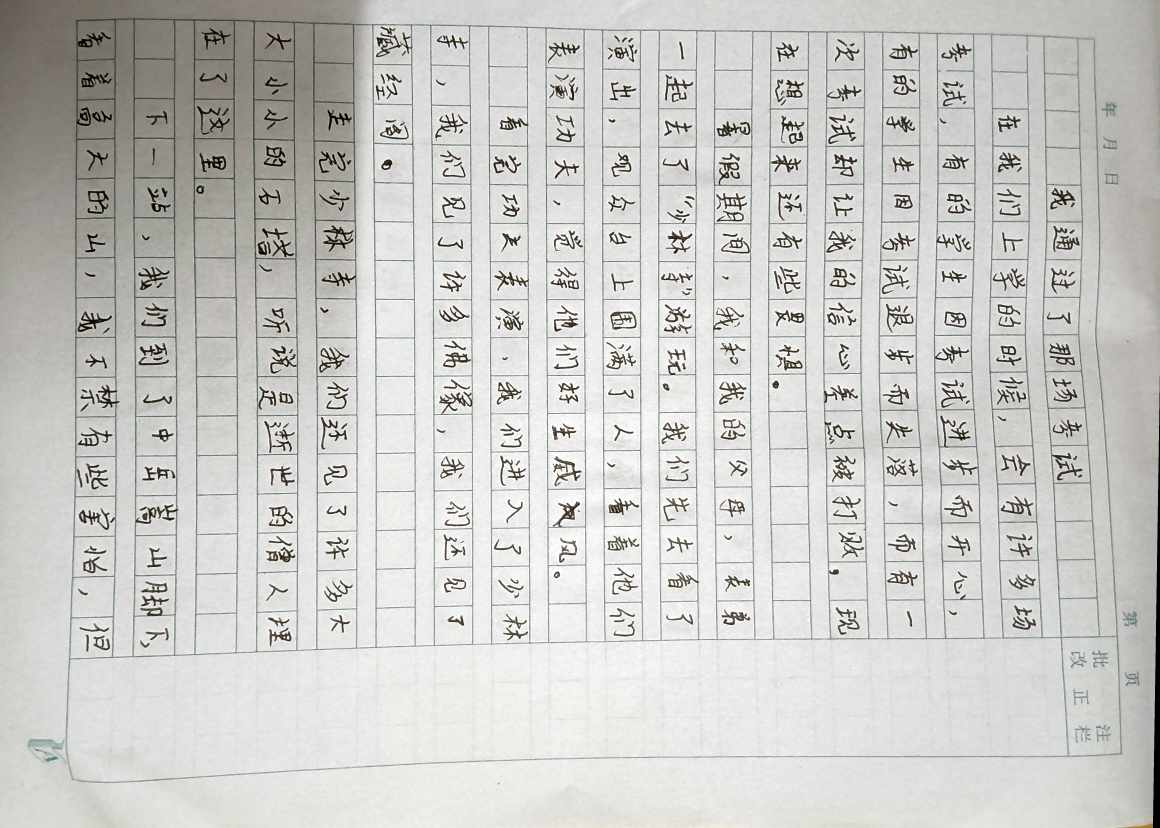 年 月 日
第 页
批注
改正栏
我通过了那场考试
在我们上学的时候，会有许多场
考试，有的学生因考试进步而开心，
有的学生因考试退步而失落，而有一
次考试却让我的信心差点被打败，现
在想起来还有些畏惧。
暑假期间，我和我的父母，表弟
一起去了“少林寺”游玩。我们先去看了
演出，观众台上围满了人，看着他们
表演功夫，觉得他们好生威风。
看完功夫表演，我们进入了少林
寺，我们见了许多佛像，我们还见了
藏经阁。
走完少林寺，我们还见了许多大
大小小的石塔，听说是逝世的僧人埋
在了这里。
下一站，我们到了中岳嵩山脚下，
看着高大的山，我不禁有些害怕，但